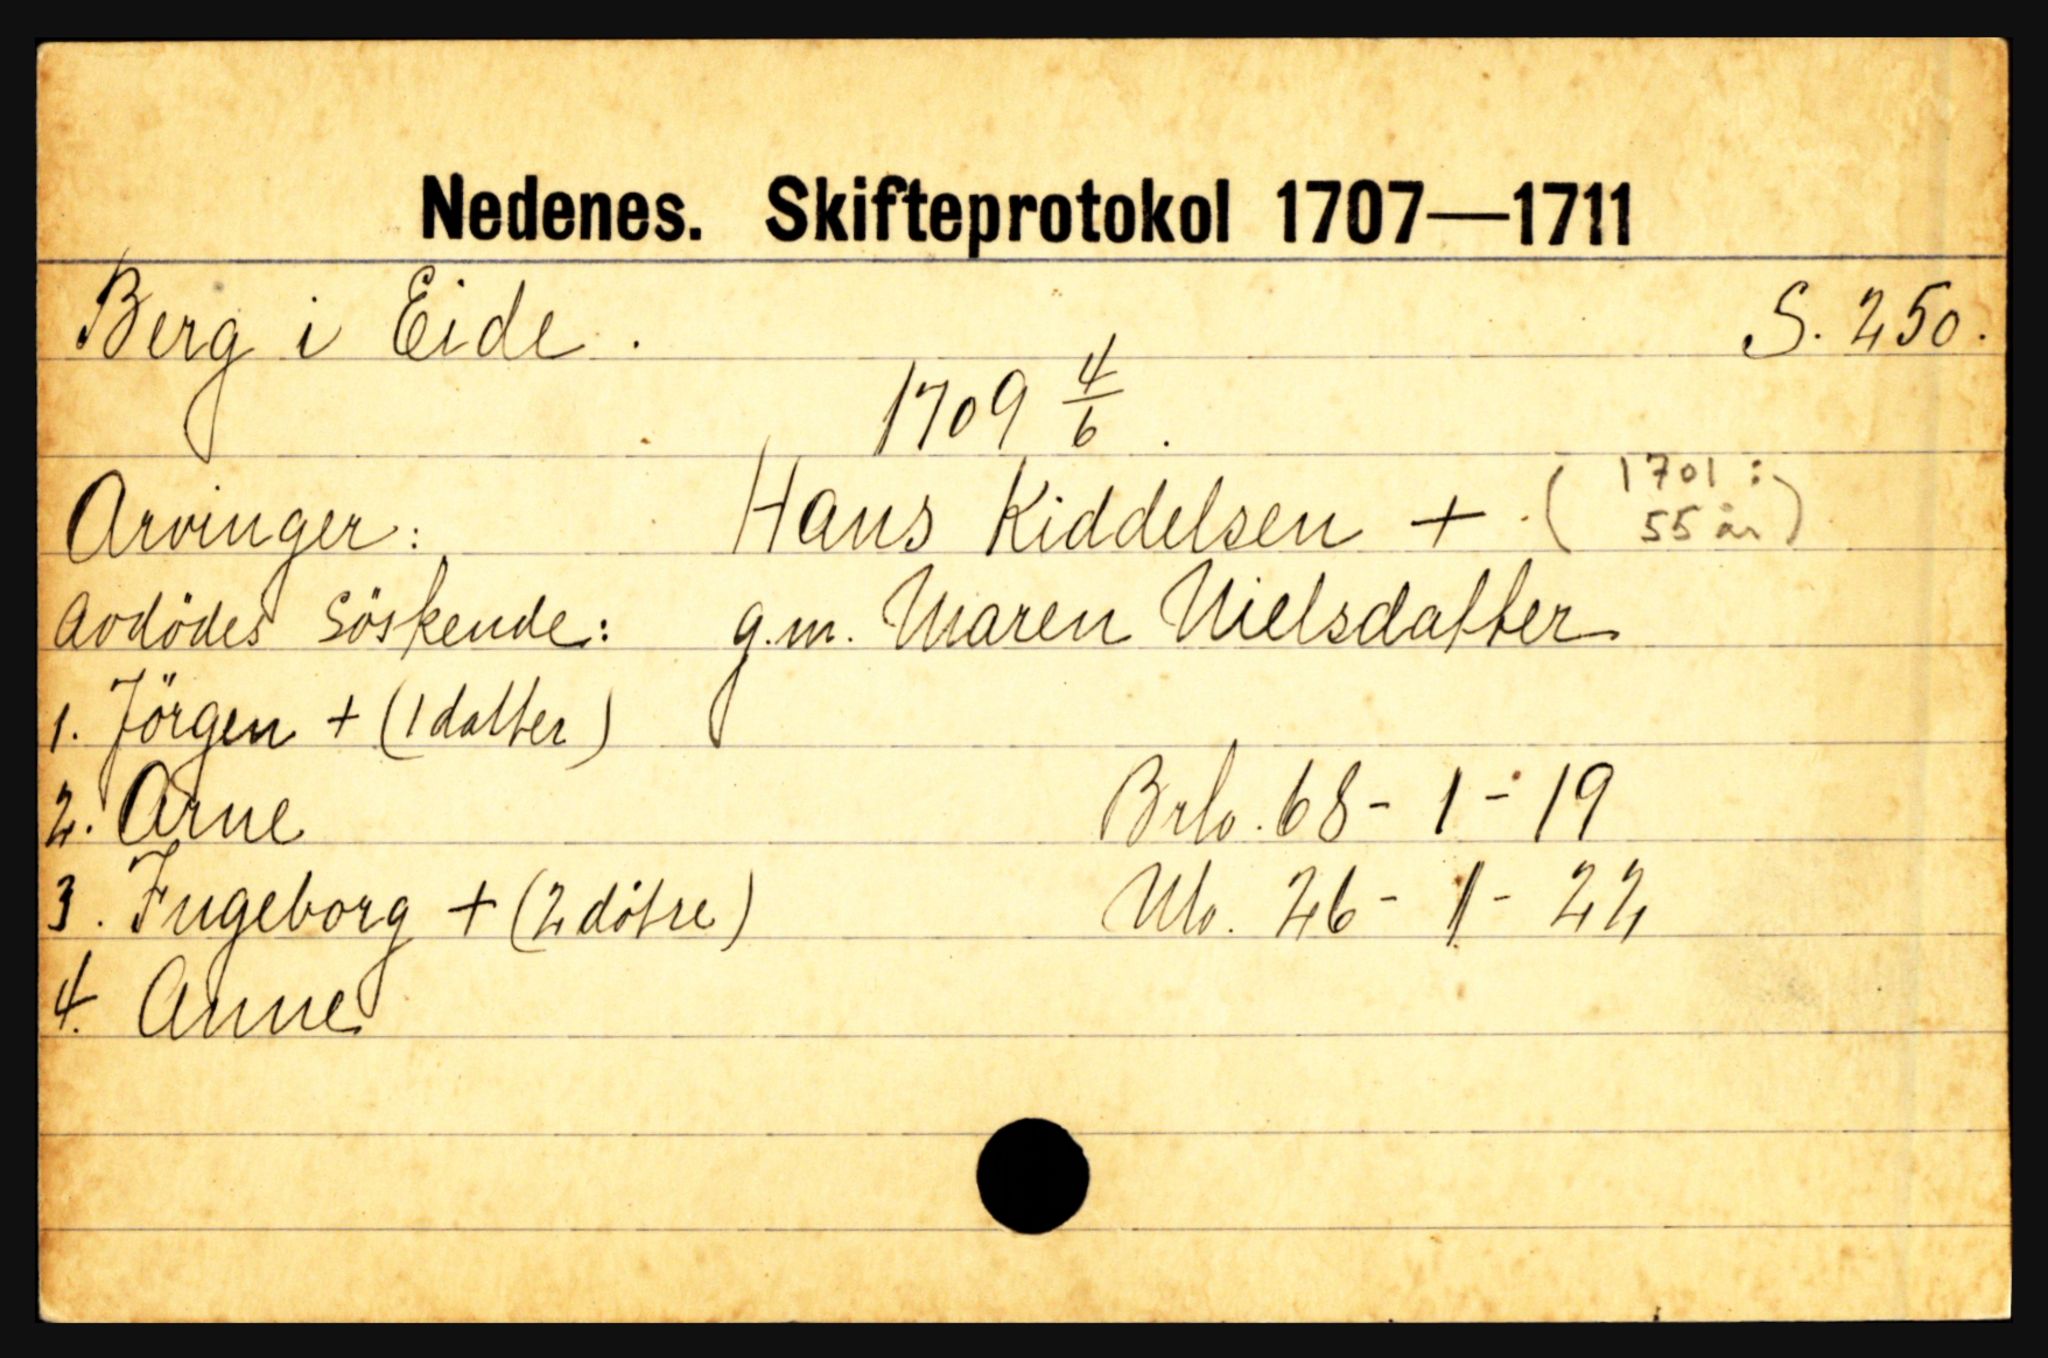 Nedenes. Skifteprotokol 1707—1711
Berg i Eide. S. 250.
1709 4/6.
Arvinger: Hans Kiddelsen + (1701: 55 år)
Avdödes Söskende: g.m. Maren Nielsdatter
1. Jörgen + (1 datter)
2. Arne Brlo. 68 - 1 - 19
3. Ingeborg + (2 dötre) Ulo. 26 - 1 - 22
4. Anne